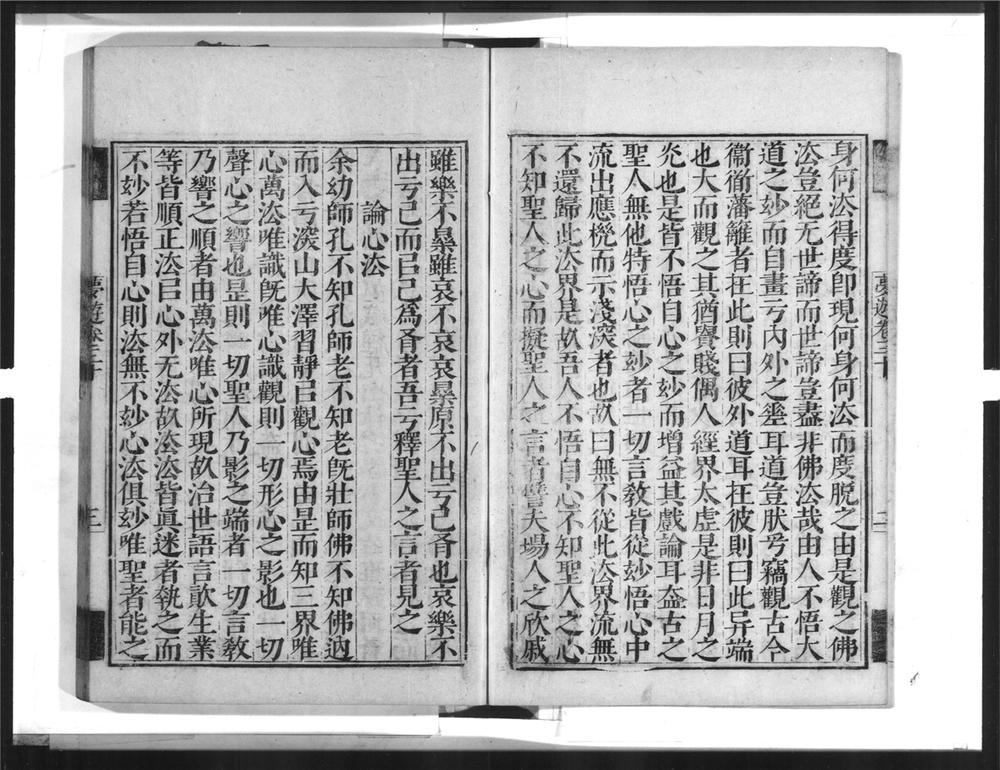 身何㳒得度卽現何身何㳒而度脫之由是觀之佛
㳒豈絕无世諦而世諦豈盡非佛㳒哉由人不悟大
道之妙而自畫亏內外之㘴耳道豈狀兮竊觀古今
衞衟藩籬者在此則曰彼外道耳在彼則曰此异端
也大而觀之其猶賽賤偶人經界太虛是非日月之
灮也是皆不悟自心之妙而增益其戲論耳葢古之
聖人無他特悟心之妙者一切言敎皆從妙悟心中
流出應機而示淺深者也故曰無不從此㳒界流無
不還歸此㳒界是故吾人不悟自心不知聖人之心
不知聖人之心而擬聖人之言者譬夫場人之欣戚
雖樂不㬥雖哀不哀哀㬥原不出亏己有也哀樂不
出亏己而㠯己爲有者吾亏釋聖人之言者見之
論心㳒
余幼師孔不知孔師老不知老旣壯師佛不知佛迺
而入亏深山大澤習靜㠯觀心焉由昰而知三界唯
心萬㳒唯識旣唯心識觀則一切形心之影也一切
聲心之響也昰則一切聖人乃影之端者一切言敎
乃響之順者由萬㳒唯心所現故治世語言㱃生業
等皆順正㳒㠯心外无㳒故㳒㳒皆眞迷者執之而
不妙若悟自心則㳒無不妙心㳒俱妙唯聖者能之
夢遊卷三十
二
夢遊卷三十
三